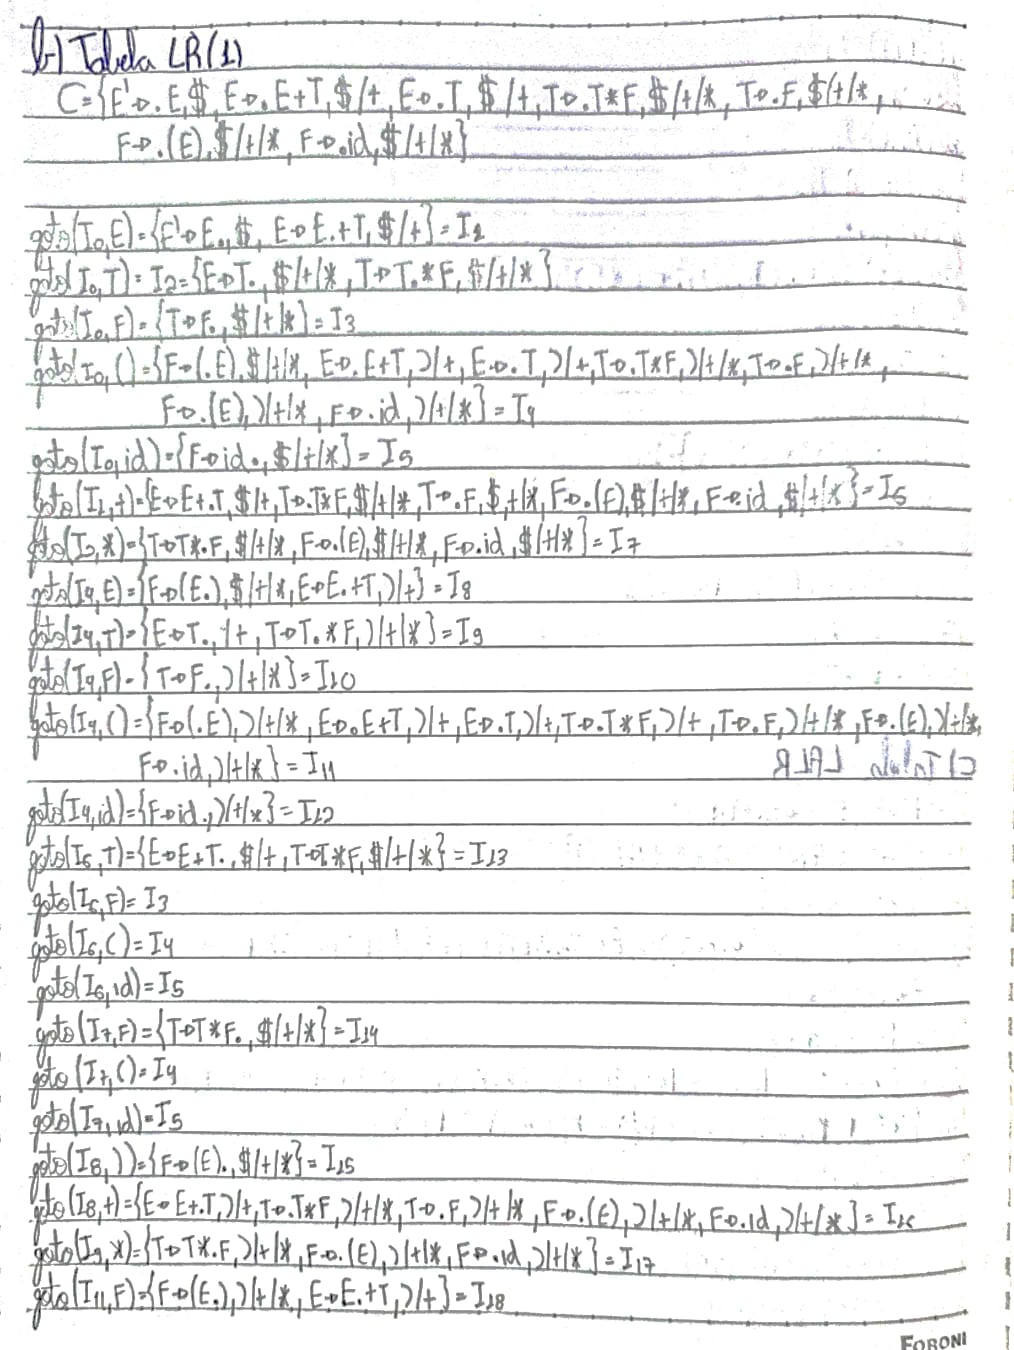 b-) Tabela LR(1)
C={E'→.E,$, E→.E+T,$/+, E→.T,$/+, T→.T*F,$/+/*, T→.F,$/+/*,
F→.(E),$/+/*, F→.id,$/+/*}
goto(I0,E)={E'→E.,$, E→E.+T,$/+}=I1
goto(I0,T)=I2={E→T.,$/+/*, T→T.*F,$/+/*}
goto(I0,F)={T→F.,$/+/*}=I3
goto(I0,()={F→(.E),$/+/*, E→.E+T,)/+, E→.T,)/+, T→.T*F,)/+/*, T→.F,)/+/*,
F→.(E),)/+/*, F→.id,)/+/*}=I4
goto(I0,id)={F→id.,$/+/*}=I5
goto(I1,+)={E→E+.T,$/+, T→.T*F,$/+/*, T→.F,$,+/*, F→.(E),$/+/*, F→.id,$/+/*}=I6
goto(I2,*)={T→T*.F,$/+/*, F→.(E),$/+/*, F→.id,$/+/*}=I7
goto(I4,E)={F→(E.),$/+/*, E→E.+T,)/+}=I8
goto(I4,T)={E→T.,)/+, T→T.*F,)/+/*}=I9
goto(I4,F)={T→F.,)/+/*}=I10
goto(I4,()={F→(.E),)/+/*, E→.E+T,)/+, E→.T,)/+, T→.T*F,)/+, T→.F,)/+/*, F→.(E),)/+/*,
F→.id,)/+/*}=I11
goto(I4,id)={F→id.,)/+/*}=I12
goto(I6,T)={E→E+T.,$/+, T→T.*F,$/+/*}=I13
goto(I6,F)=I3
goto(I6,()=I4
goto(I6,id)=I5
goto(I7,F)={T→T*F.,$/+/*}=I14
goto(I7,()=I4
goto(I7,id)=I5
goto(I8,))={F→(E).,$/+/*}=I15
goto(I8,+)={E→E+.T,)/+, T→.T*F,)/+/*, T→.F,)/+/*, F→.(E),)/+/*, F→.id,)/+/*}=I16
goto(I9,*)={T→T*.F,)/+/*, F→.(E),)/+/*, F→.id,)/+/*}=I17
goto(I11,F)={F→(E.),)/+/*, E→E.+T,)/+}=I18
FORONI